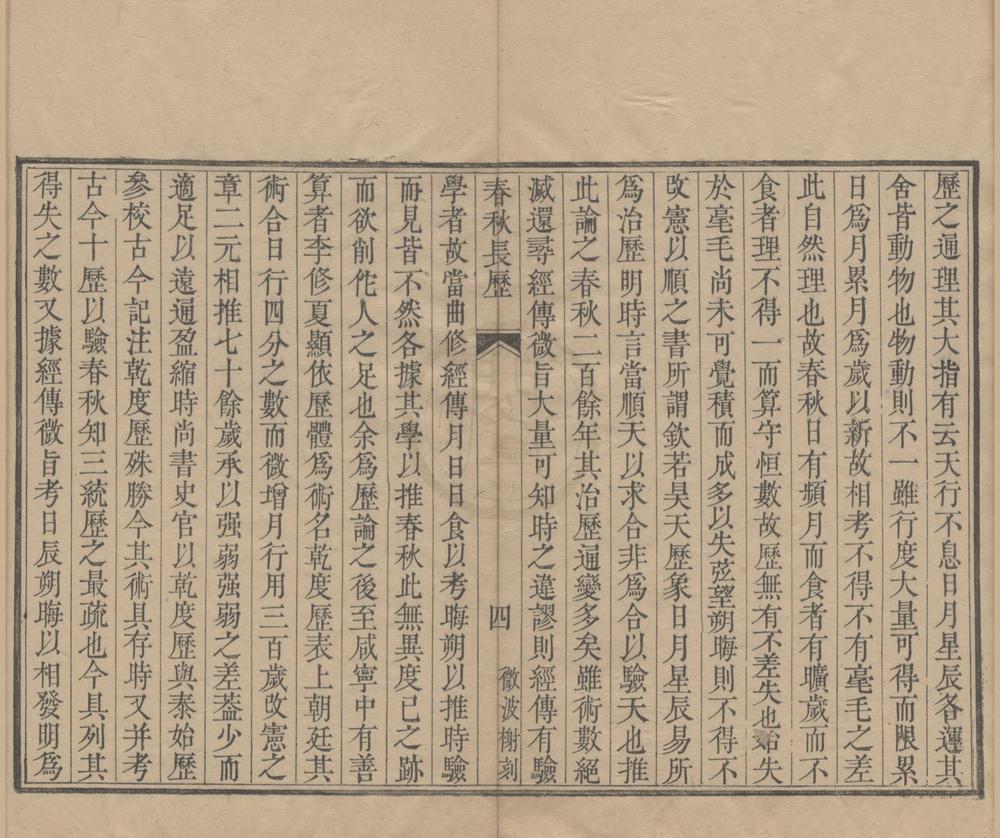 歷之通理其大指有云天行不息日月星辰各運其
舍皆動物也物動則不一雖行度大量可得而限累
日爲月累月爲歲以新故相考不得不有毫毛之差
此自然理也故春秋日有頻月而食者有曠歲而不
食者理不得一而算守恒數故歷無有不差失也始失
於毫毛尚未可覺積而成多以失弦望朔晦則不得不
改憲以順之書所謂欽若昊天歷象日月星辰易所
爲治歷明時言當順天以求合非爲合以驗天也推
此論之春秋二百餘年其治歷通變多矣雖術數絕
滅還尋經傳微旨大量可知時之違謬則經傳有驗
春秋長歷
四
微波榭刻
學者故當曲修經傳月日日食以考晦朔以推時驗
而見皆不然各據其學以推春秋此無異度已之跡
而欲削他人之足也余爲歷論之後至咸寧中有善
算者李修夏顯依歷體爲術名乾度歷表上朝廷其
術合日行四分之數而微增月行用三百歲改憲之
章二元相推七十餘歲承以强弱强弱之差葢少而
適足以遠通盈縮時尚書史官以乾度歷與泰始歷
參校古今記注乾度歷殊勝今其術具存時又并考
古今十歷以驗春秋知三統歷之最疏也今具列其
得失之數又據經傳微旨考日辰朔晦以相發明爲